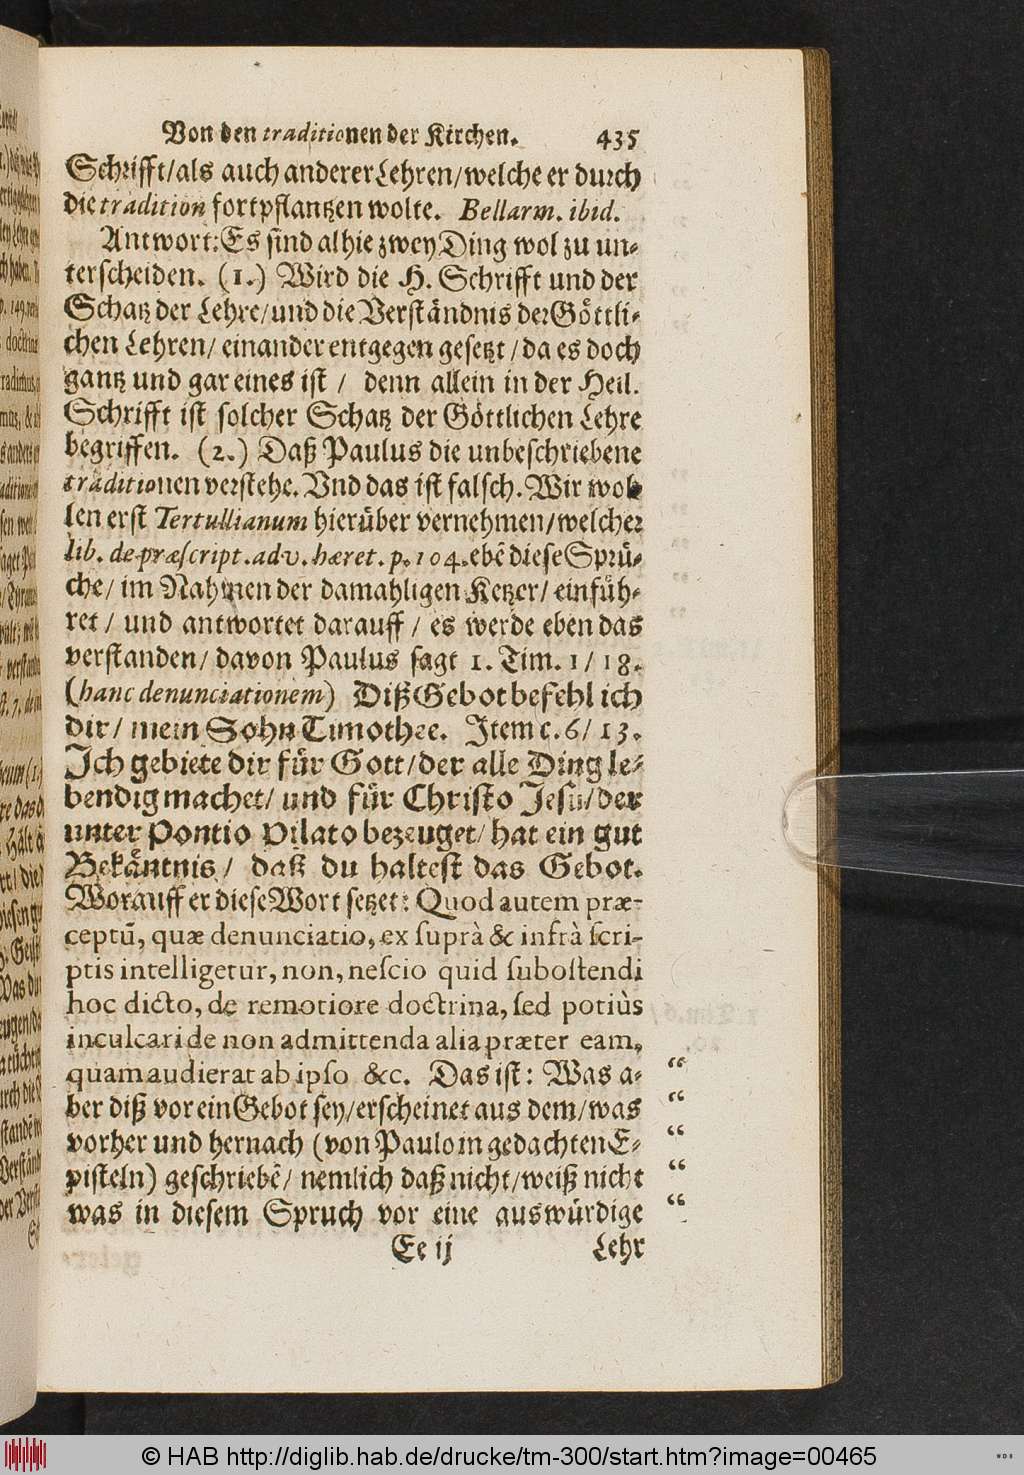 Von den traditionen der Kirchen. 435
Schrifft/als auch anderer Lehren/welche er durch
die tradition fortpflantzen wolte. Bellarm. ibid.
Antwort: Es sind alhie zwey Ding wol zu un-
terscheiden. (1.) Wird die H. Schrifft und der
Schatz der Lehre/und die Verständnis der Göttli-
chen Lehren/ einander entgegen gesetzt/da es doch
gantz und gar eines ist / denn allein in der Heil.
Schrifft ist solcher Schatz der Göttlichen Lehre
begriffen. (2.) Daß Paulus die unbeschriebene
traditionen verstehe. Vnd das ist falsch. Wir wol-
len erst Tertullianum hierüber vernehmen/welcher
lib. de præſcript. adv. hæret. p. 104. ebē diese Sprü-
che/ im Nahmen der damahligen Ketzer/ einfüh-
ret / und antwortet darauff / es werde eben das
verstanden/ davon Paulus sagt 1. Tim. 1/ 18.
(hanc denunciationem) Diß Gebot befehl ich
dir/ mein Sohn Timothee. Item c. 6/ 13.
Ich gebiete dir für Gott/der alle Ding le-
bendig machet/ und für Christo Jesu/der
unter Pontio Pilato bezeuget/ hat ein gut
Bekäntnis/ daß du haltest das Gebot.
Worauff er diese Wort setzet: Quod autem præ-
ceptū, quæ denunciatio, ex ſuprà & infrà ſcri-
ptis intelligetur, non, neſcio quid ſuboſtendi
hoc dicto, de remotiore doctrina, ſed potiùs
inculcari de non admittenda alia præter eam,
quam audierat ab ipſo &c. Das ist: Was a- “
ber diß vor ein Gebot sey/erscheinet aus dem/was “
vorher und hernach (von Paulo in gedachten E- “
pisteln) geschriebē/ nemlich daß nicht/weiß nicht “
was in diesem Spruch vor eine auswürdige “
Ee ij Lehr
© HAB http://diglib.hab.de/drucke/tm-300/start.htm?image=00465